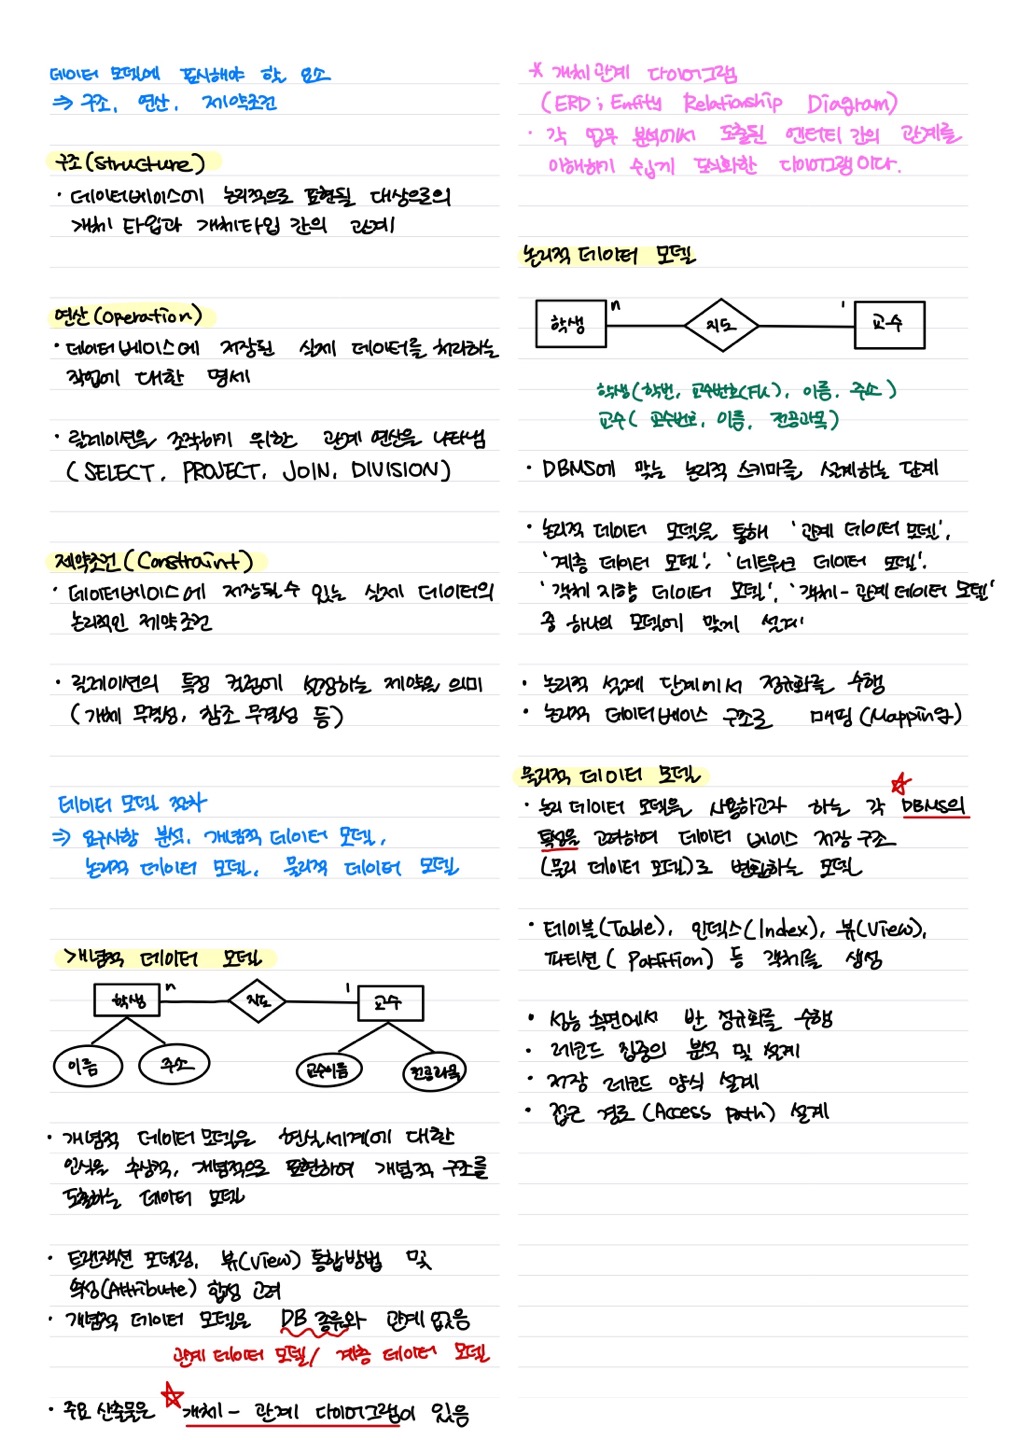 데이터 모델에 표시해야 할 요소
⇒ 구조, 연산, 제약조건
구조(Structure)
· 데이터베이스에 논리적으로 표현될 대상으로의
개체 타입과 개체타입 간의 관계
연산(Operation)
· 데이터베이스에 저장된 실제 데이터를 처리하는
작업에 대한 명세
· 릴레이션을 조작하기 위한 관계 연산을 나타냄
(SELECT, PROJECT, JOIN, DIVISION)
제약조건(Constraint)
· 데이터베이스에 저장될 수 있는 실제 데이터의
논리적인 제약조건
· 릴레이션의 특정 컬럼에 설정하는 제약을 의미
(개체 무결성, 참조 무결성 등)
데이터 모델 절차
⇒ 요구사항 분석, 개념적 데이터 모델,
논리적 데이터 모델, 물리적 데이터 모델
>개념적 데이터 모델
학생 n 지도 1 교수
이름 주소 교수이름 전공과목
· 개념적 데이터 모델은 현실세계에 대한
인식을 추상적, 개념적으로 표현하여 개념적 구조를
도출하는 데이터 모델
· 트랜잭션 모델링, 뷰(View) 통합방법 및
속성(Attribute) 합성 고려
· 개념적 데이터 모델은 DB 종류와 관계 없음
관계 데이터 모델/ 계층 데이터 모델
· 주요 산출물은 ☆개체 - 관계 다이어그램이 있음
* 개체 관계 다이어그램
(ERD; Entity Relationship Diagram)
· 각 업무 분석에서 도출된 엔터티 간의 관계를
이해하기 쉽게 도식화한 다이어그램이다.
논리적 데이터 모델
학생 n 지도 1 교수
학생(학번, 교수번호(FK), 이름, 주소)
교수( 교수번호, 이름, 전공과목)
· DBMS에 맞는 논리적 스키마를 설계하는 단계
· 논리적 데이터 모델을 통해 '관계 데이터 모델',
'계층 데이터 모델', '네트워크 데이터 모델',
'객체 지향 데이터 모델', '객체-관계 데이터 모델'
중 하나의 모델에 맞게 설계
· 논리적 설계 단계에서 정규화를 수행
· 논리적 데이터베이스 구조로 매핑(Mapping)
물리적 데이터 모델
· 논리 데이터 모델을 사용하고자 하는 각 ☆DBMS의
특성을 고려하여 데이터 베이스 저장 구조
(물리 데이터 모델)로 변환하는 모델
· 테이블(Table), 인덱스(Index), 뷰(View),
파티션( Partition) 등 객체를 생성
· 성능 측면에서 반 정규화를 수행
· 레코드 집중의 분석 및 설계
· 저장 레코드 양식 설계
· 접근 경로(Access path) 설계